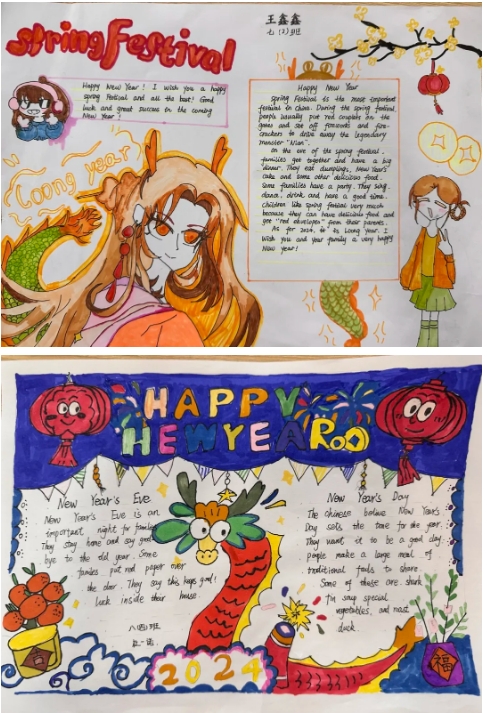 Spring Festival
王鑫鑫
七(2)班
Happy New Year! I wish you a happy
spring festival and all the best! Good
luck and great success in the coming
New Year!
Loong year
Happy New Year
Spring Festival is the most important
festival in China. During the spring festival,
people usually put red couplets on the
gates and set off fireworks and fire-
crackers to drive away the legendary
monster "Nian".
On the eve of the spring festival,
families get together and have a big
dinner. They eat dumplings, New Year's
cake and some other delicious food.
Some families have a party. They sing,
dance, drink and have a good time.
Children like spring festival very much
because they can have delicious food and
get "red envelopes" from their parents.
As for 2024, it is Loong year. I
Wish you and your family a very happy
New year!
HAPPY
NEWYEAR
New Year's Eve
New Year's Eve is an
important night for families
They stay home and say good
bye to the old year. Some
families put red paper over
the door. They say this keeps good
luck inside their house
八四班
New Year's Day
The chinese believe New Year's
Day sets the tone for the year.
They want it to be a good day.
people make a large meal of
traditional foods to share.
Some of those are shark
fin soup special
vegetables, and roast
duck.
2024
福